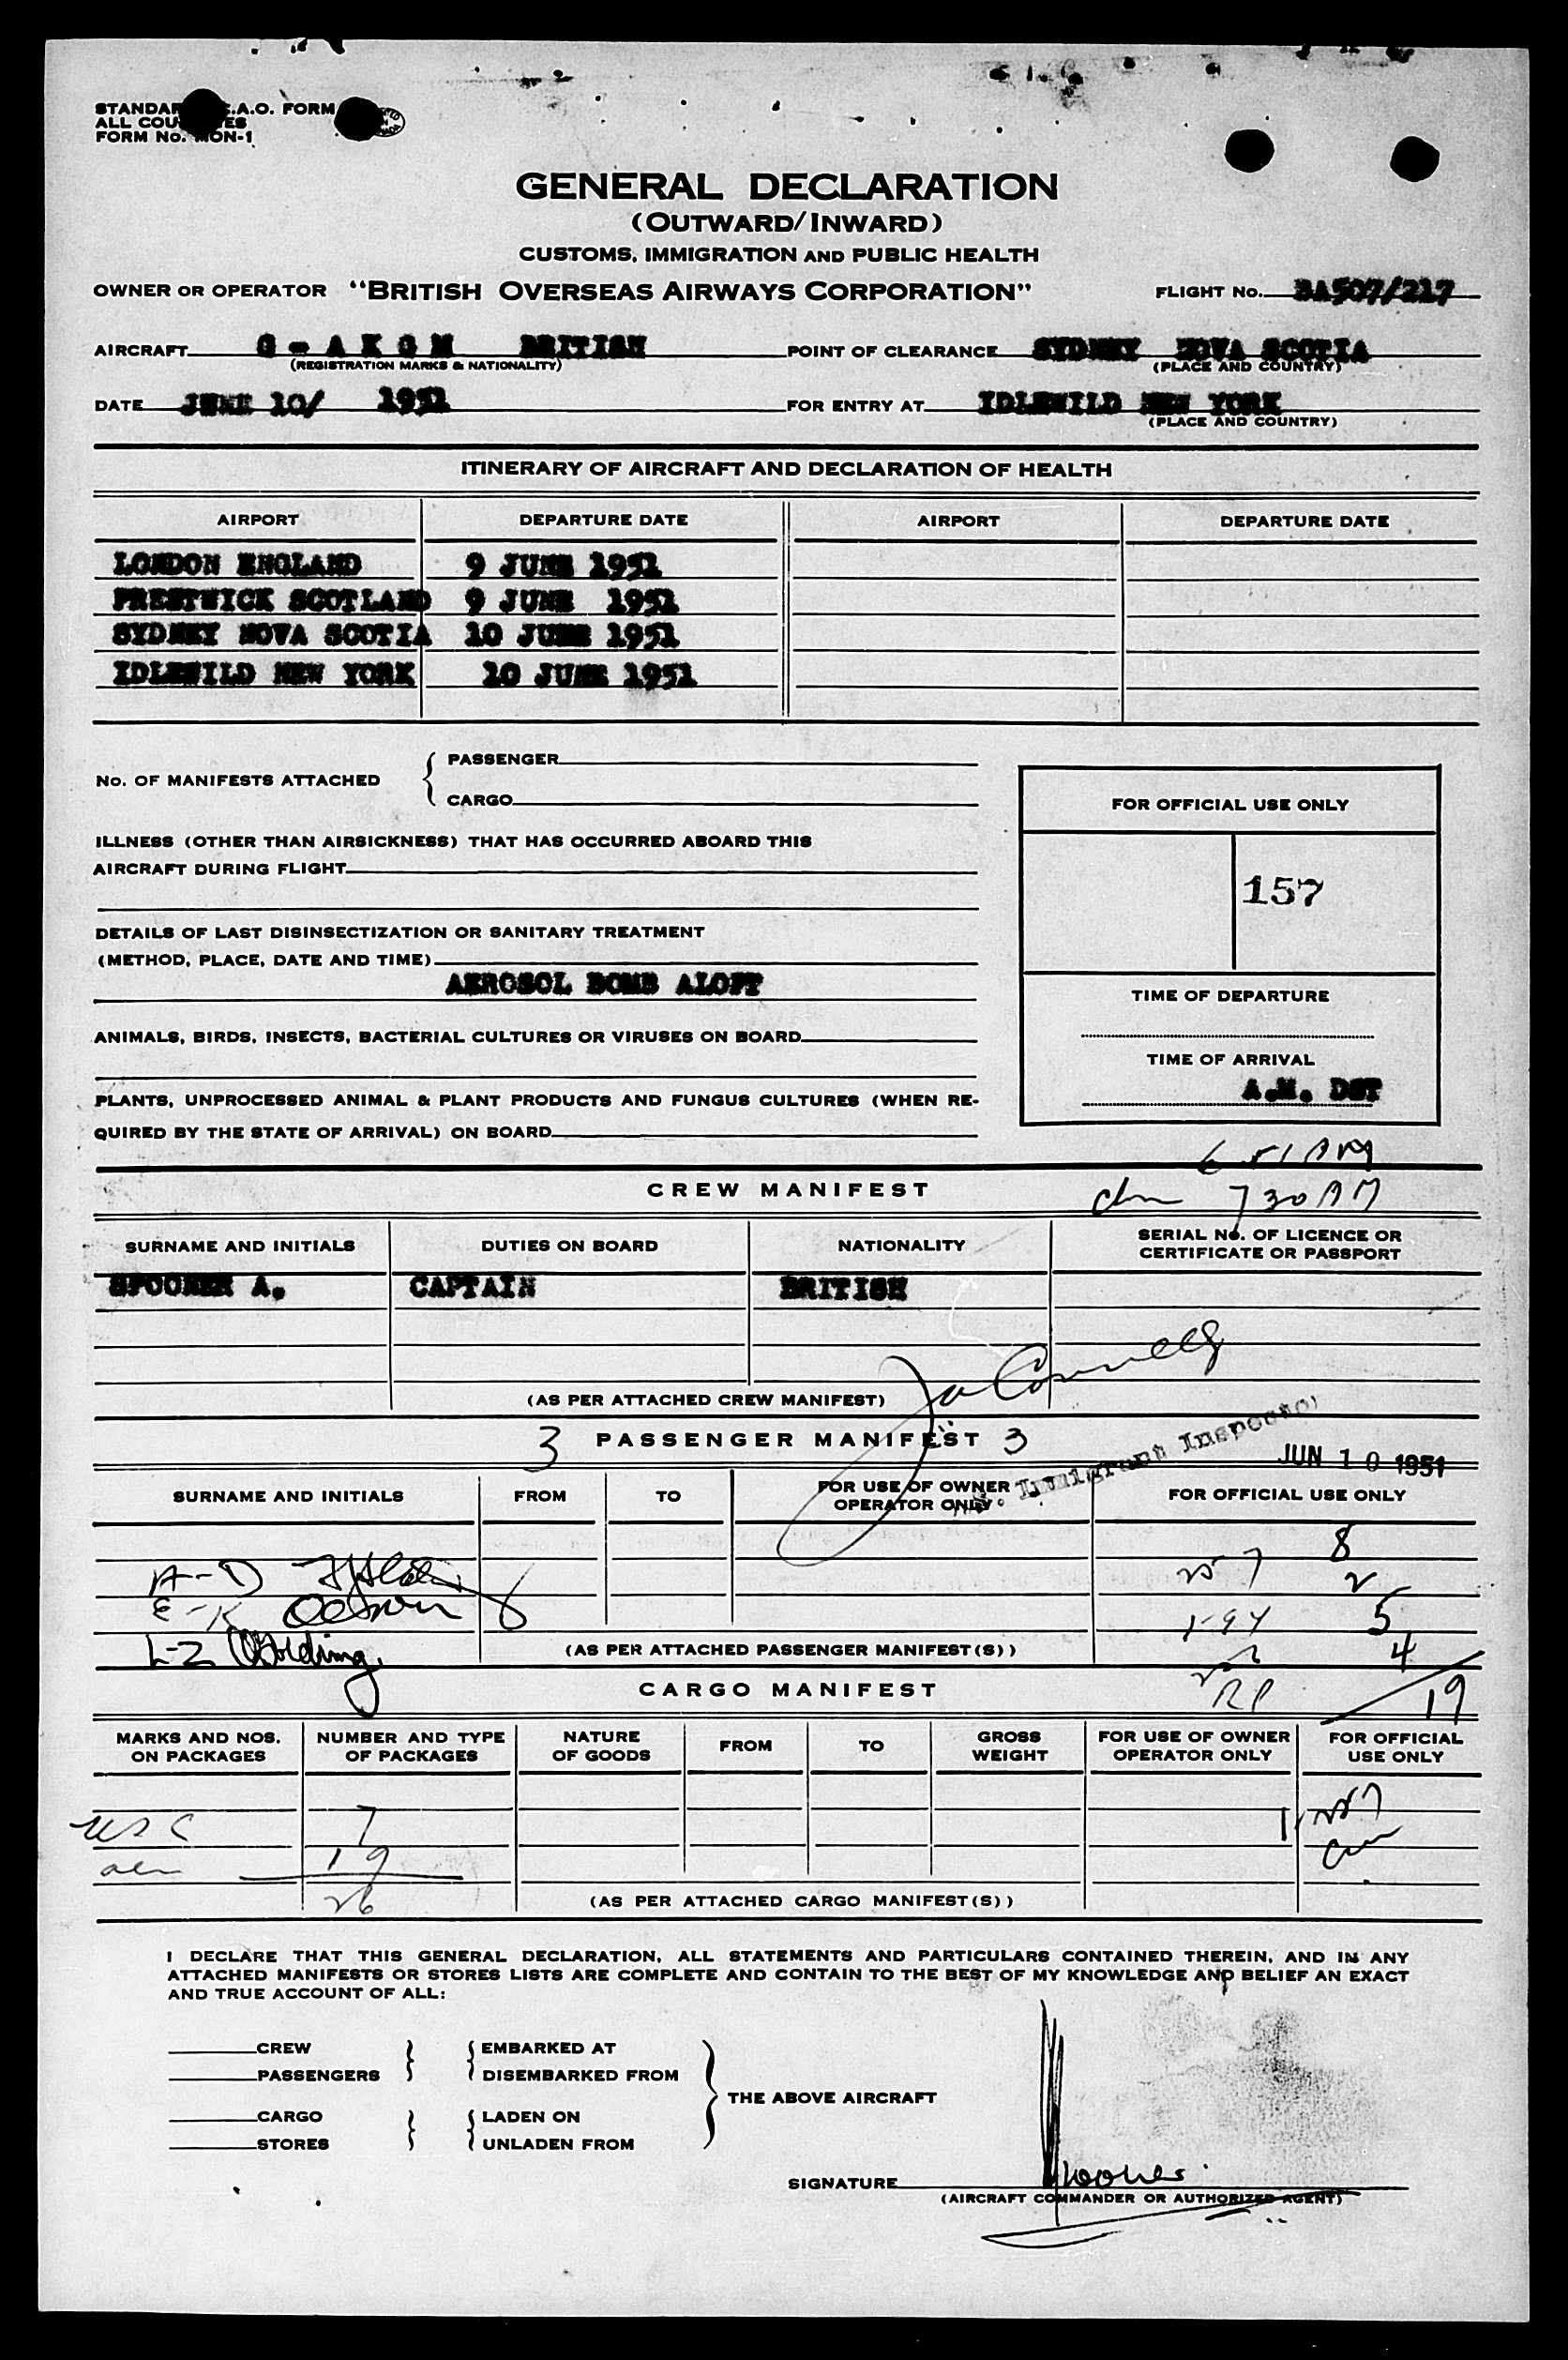 STANDARD I.C.A.O. FORM
ALL COUNTRIES
FORM No. MON-1
GENERAL DECLARATION
(OUTWARD/INWARD)
CUSTOMS, IMMIGRATION AND PUBLIC HEALTH
OWNER OR OPERATOR "BRITISH OVERSEAS AIRWAYS CORPORATION" FLIGHT No. BA507/217
AIRCRAFT G-AKGM BRITISH POINT OF CLEARANCE SYDNEY NOVA SCOTIA
(REGISTRATION MARKS & NATIONALITY) (PLACE AND COUNTRY)
DATE JUNE 10/ 1951 FOR ENTRY AT IDLEWILD NEW YORK
(PLACE AND COUNTRY)
ITINERARY OF AIRCRAFT AND DECLARATION OF HEALTH
AIRPORT DEPARTURE DATE AIRPORT DEPARTURE DATE
LONDON ENGLAND 9 JUNE 1951
PRESTWICK SCOTLAND 9 JUNE 1951
SYDNEY NOVA SCOTIA 10 JUNE 1951
IDLEWILD NEW YORK 10 JUNE 1951
No. OF MANIFESTS ATTACHED
PASSENGER
CARGO
ILLNESS (OTHER THAN AIRSICKNESS) THAT HAS OCCURRED ABOARD THIS
AIRCRAFT DURING FLIGHT
DETAILS OF LAST DISINSECTIZATION OR SANITARY TREATMENT
(METHOD, PLACE, DATE AND TIME)
AEROSOL BOMB ALOFT
ANIMALS, BIRDS, INSECTS, BACTERIAL CULTURES OR VIRUSES ON BOARD
PLANTS, UNPROCESSED ANIMAL & PLANT PRODUCTS AND FUNGUS CULTURES (WHEN RE-
QUIRED BY THE STATE OF ARRIVAL) ON BOARD
FOR OFFICIAL USE ONLY
157
TIME OF DEPARTURE
TIME OF ARRIVAL
A.M. DST
6 51 AM
7 30 AM
CREW MANIFEST
SURNAME AND INITIALS DUTIES ON BOARD NATIONALITY SERIAL No. OF LICENCE OR
CERTIFICATE OR PASSPORT
SPOONER A. CAPTAIN BRITISH
(AS PER ATTACHED CREW MANIFEST)
3 PASSENGER MANIFEST 3
Immigrant Inspector
JUN 10 1951
SURNAME AND INITIALS FROM TO FOR USE OF OWNER
OPERATOR ONLY FOR OFFICIAL USE ONLY
8
A-D 257 2
E-K
1-94 5
L-Z (AS PER ATTACHED PASSENGER MANIFEST(S)) 4
RP 19
CARGO MANIFEST
MARKS AND NOS.
ON PACKAGES NUMBER AND TYPE
OF PACKAGES NATURE
OF GOODS FROM TO GROSS
WEIGHT FOR USE OF OWNER
OPERATOR ONLY FOR OFFICIAL
USE ONLY
USC 7
19
26 (AS PER ATTACHED CARGO MANIFEST(S))
I DECLARE THAT THIS GENERAL DECLARATION, ALL STATEMENTS AND PARTICULARS CONTAINED THEREIN, AND IN ANY
ATTACHED MANIFESTS OR STORES LISTS ARE COMPLETE AND CONTAIN TO THE BEST OF MY KNOWLEDGE AND BELIEF AN EXACT
AND TRUE ACCOUNT OF ALL:
CREW EMBARKED AT
PASSENGERS DISEMBARKED FROM
THE ABOVE AIRCRAFT
CARGO LADEN ON
STORES UNLADEN FROM
SIGNATURE Spooner
(AIRCRAFT COMMANDER OR AUTHORIZED AGENT)